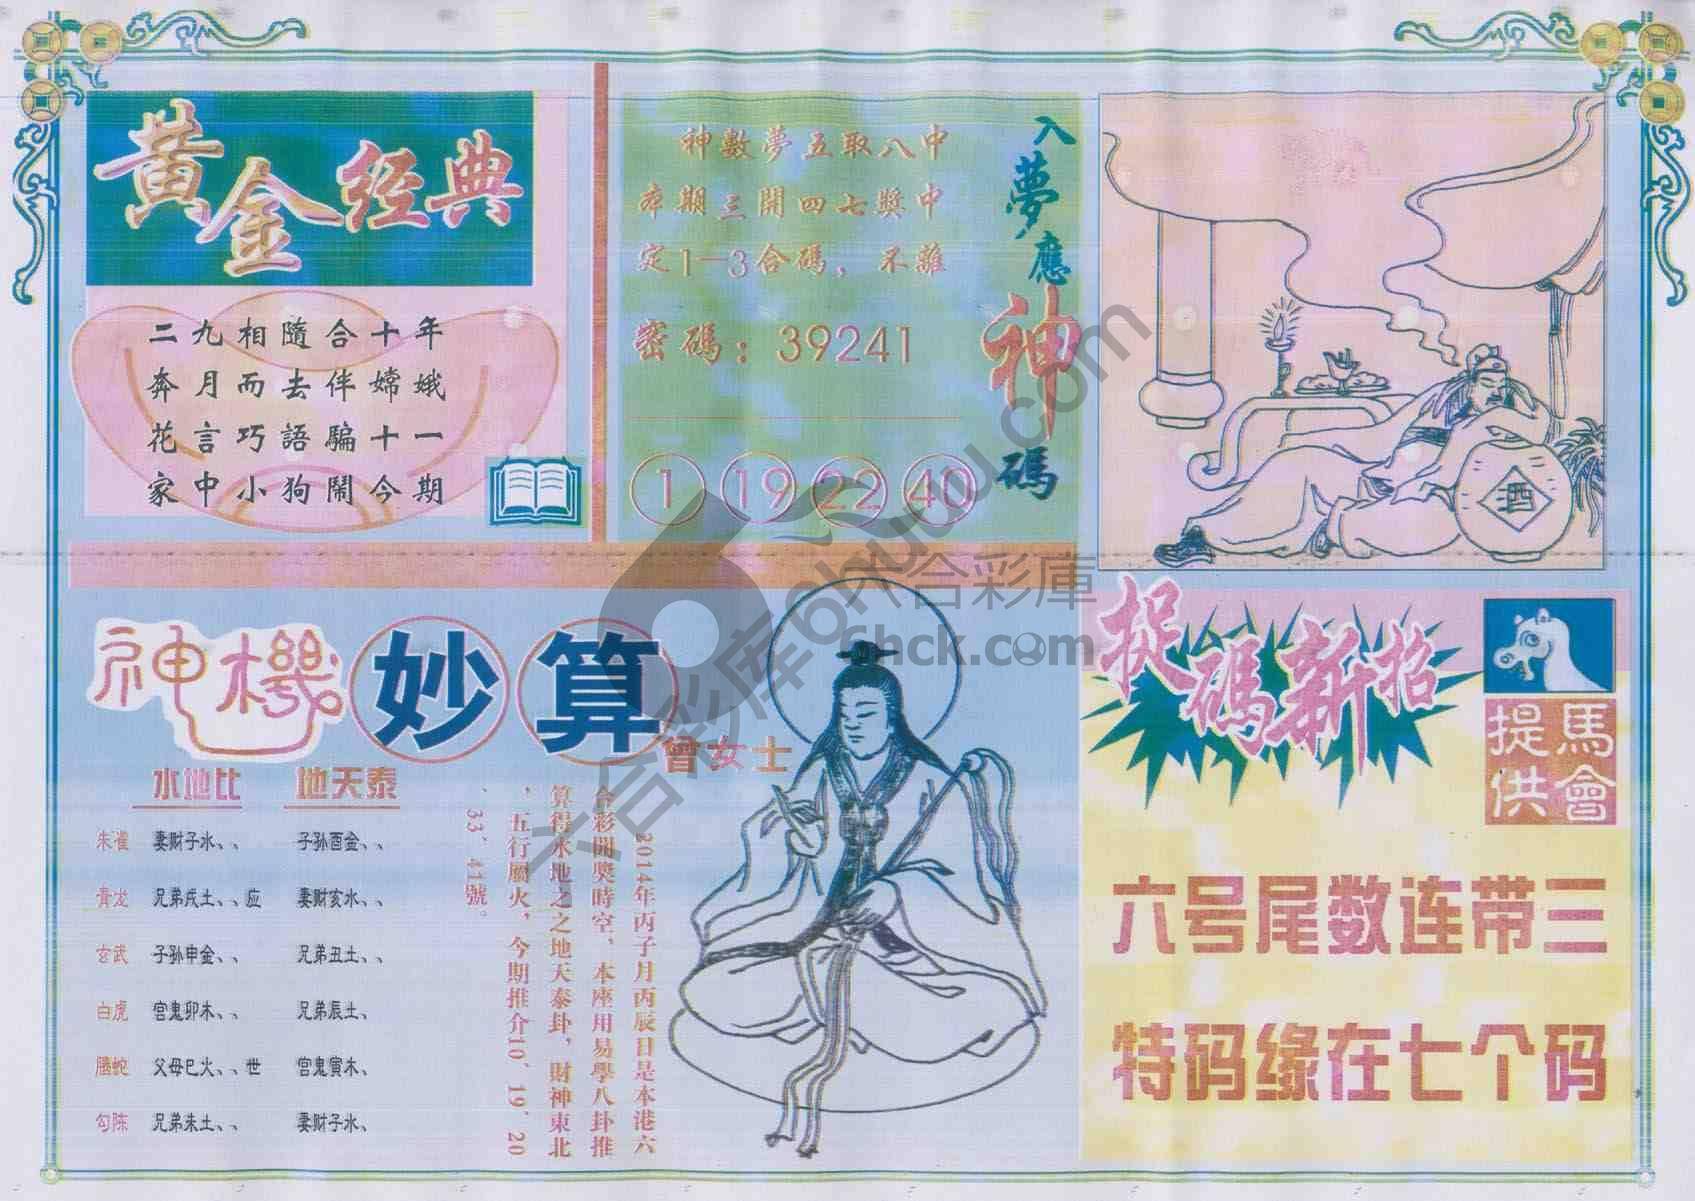 黃金经典
二九相隨合十年
奔月而去伴嫦娥
花言巧語騙十一
家中小狗鬧今期
神數夢五取八中
本期三開四七獎中
定1-3合碼，不離
密碼：39241
1 19 22 40
入夢應神碼
酒
神機妙算
曾女士
水地比 地天泰
朱雀 妻财子水、、 子孙酉金、、
青龙 兄弟戌土、、应 妻财亥水、、
玄武 子孙申金、、 兄弟丑土、、
白虎 官鬼卯木、、 兄弟辰土、
腾蛇 父母巳火、、世 官鬼寅木、
勾陈 兄弟未土、、 妻财子水、
2014年丙子月丙辰日是本港六
合彩開獎時空，本座用易學八卦推
算得水地之之地天泰卦，財神東北
，五行屬火，今期推介10、19、20
、33、41號。
捉碼新招
馬會
提供
六号尾数连带三
特码缘在七个码
六合彩库 6hwu.com
六合彩庫
6hck.com